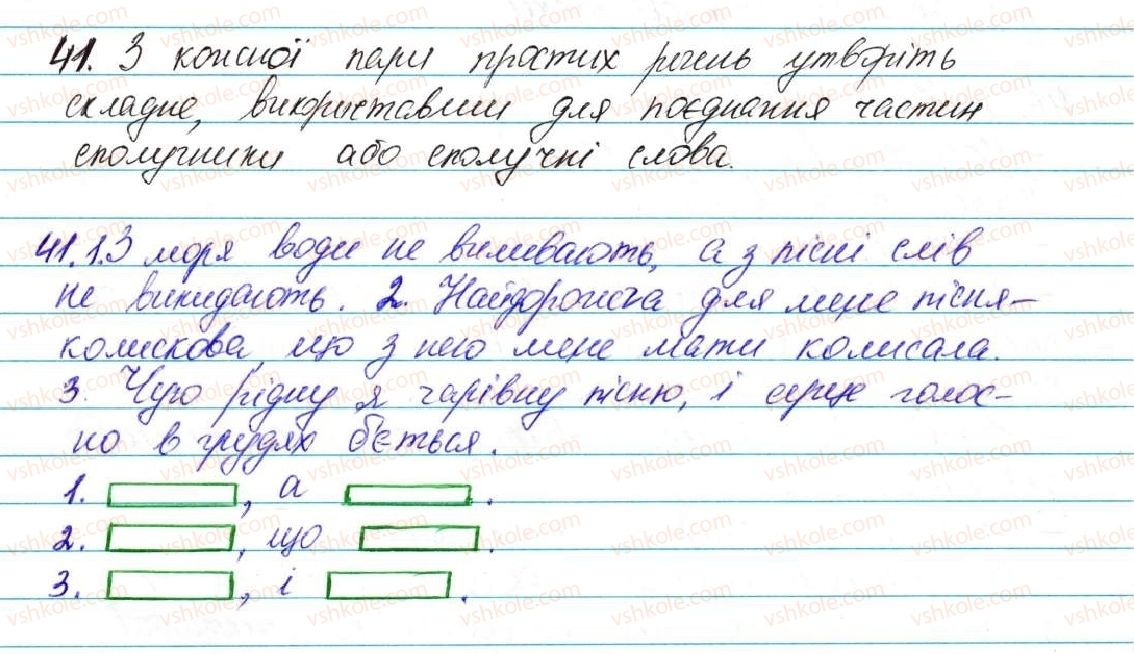 41. З кожної пари простих речень утворіть
складне, використавши для поєднання частин
сполучники або сполучні слова.
41. 1. З моря води не виливають, а з пісні слів
не викидають. 2. Найдорожча для мене пісня-
колискова, що з нею мене мати колисала.
3. Чую рідну я чарівну пісню, і серце голос-
но в грудях б'ється.
1. , а .
2. , що .
3. , і .